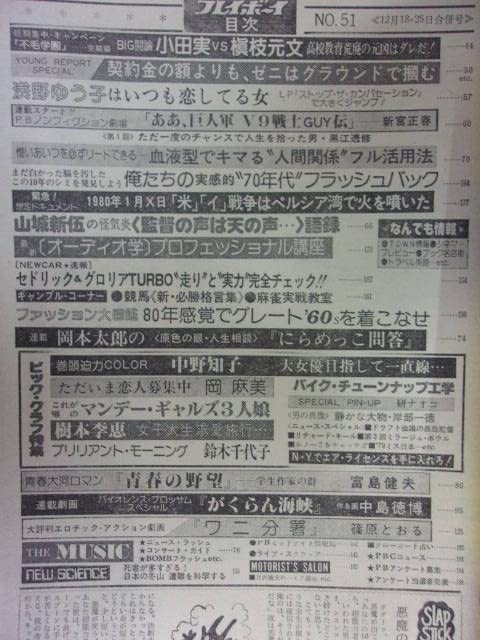 プレイボーイ
目次
NO.51 <12月18・25日合併号>
短期集中・キャンペーン
「不毛学園」
BIG討論 小田実VS槇枝元文 高校教育荒廃の元凶はダレだ!! 44
YOUNG REPORT SPECIAL
契約金の額よりも、ゼニはグラウンドで掴む 50
浅野ゆう子はいつも恋してる女 LP「ストップ・ザ・カンバセーション」で大きくジャンプ! 57
連載スタート!!
P.B.ノンフィクション劇場 「ああ、巨人軍V9戦士GUY伝」 新宮正春 60
(第1回) ただ一度のチャンスで人生を拾った男・黒江透修
憎いあいつを必ずリードできる 血液型でキマる“人間関係”フル活用法 70
まだ白かった脳を汚した
この10年のシミを発見しよう 俺たちの実感的“70年代”フラッシュバック
緊急!
ドキュメント 1980年1月X日「米」「イ」戦争はペルシア湾で火を噴いた
山城新伍の怪気炎<監督の声は天の声…>語録 66
[オーディオ学]プロフェッショナル講座
なんでも情報
●TOWN情報●シネマ・プレビュー●ブック名店街●トラベル英語 etc.
(NEWCAR★速報)
セドリック&グロリアTURBO“走り”と“実力”完全チェック!!
ギャンブル・コーナー ●競馬<新・必勝格言集> ●麻雀実戦教室
ファッション大図鑑 80年感覚でグレート'60sを着こなせ
連載 岡本太郎の<原色の眼・人生相談>『にらめっこ問答』 74
ビッグ・グラフ特集
巻頭迫力COLOR 中野知子 大女優目指して一直線…
ただいま恋人募集中 岡麻美
これが噂の マンデー・ギャルズ3人娘
樹本李恵 女子大生求愛旅行…
ブリリアント・モーニング 鈴木千代子
バイク・チューンナップ工学
SPECIAL PIN-UP 研ナオコ
<男の肖像> 静かな大物・岸部一徳
N・Yでエア・ライセンスを手に入れろ!
青春大河ロマン 『青春の野望』 学生作家の群 富島健夫 86
連載劇画 バイオレンス・ブロッサムスペシャル 『がくらん海峡』 作&画 中島徳博 95
大評判エロティック・アクション劇画 『ワニ分署』 篠原とおる 125
THE MUSIC
★ニュース・フラッシュ
★コンサート・ガイド
★BOMBフラッシュetc.
NEW SCIENCE
死者が多すぎる!
日本の冬山 遭難を科学する
MOTORIST'S SALON
★PBCニュース
★PBアンケート募集
★アンケート当選者発表
悪魔
SLAP STICK